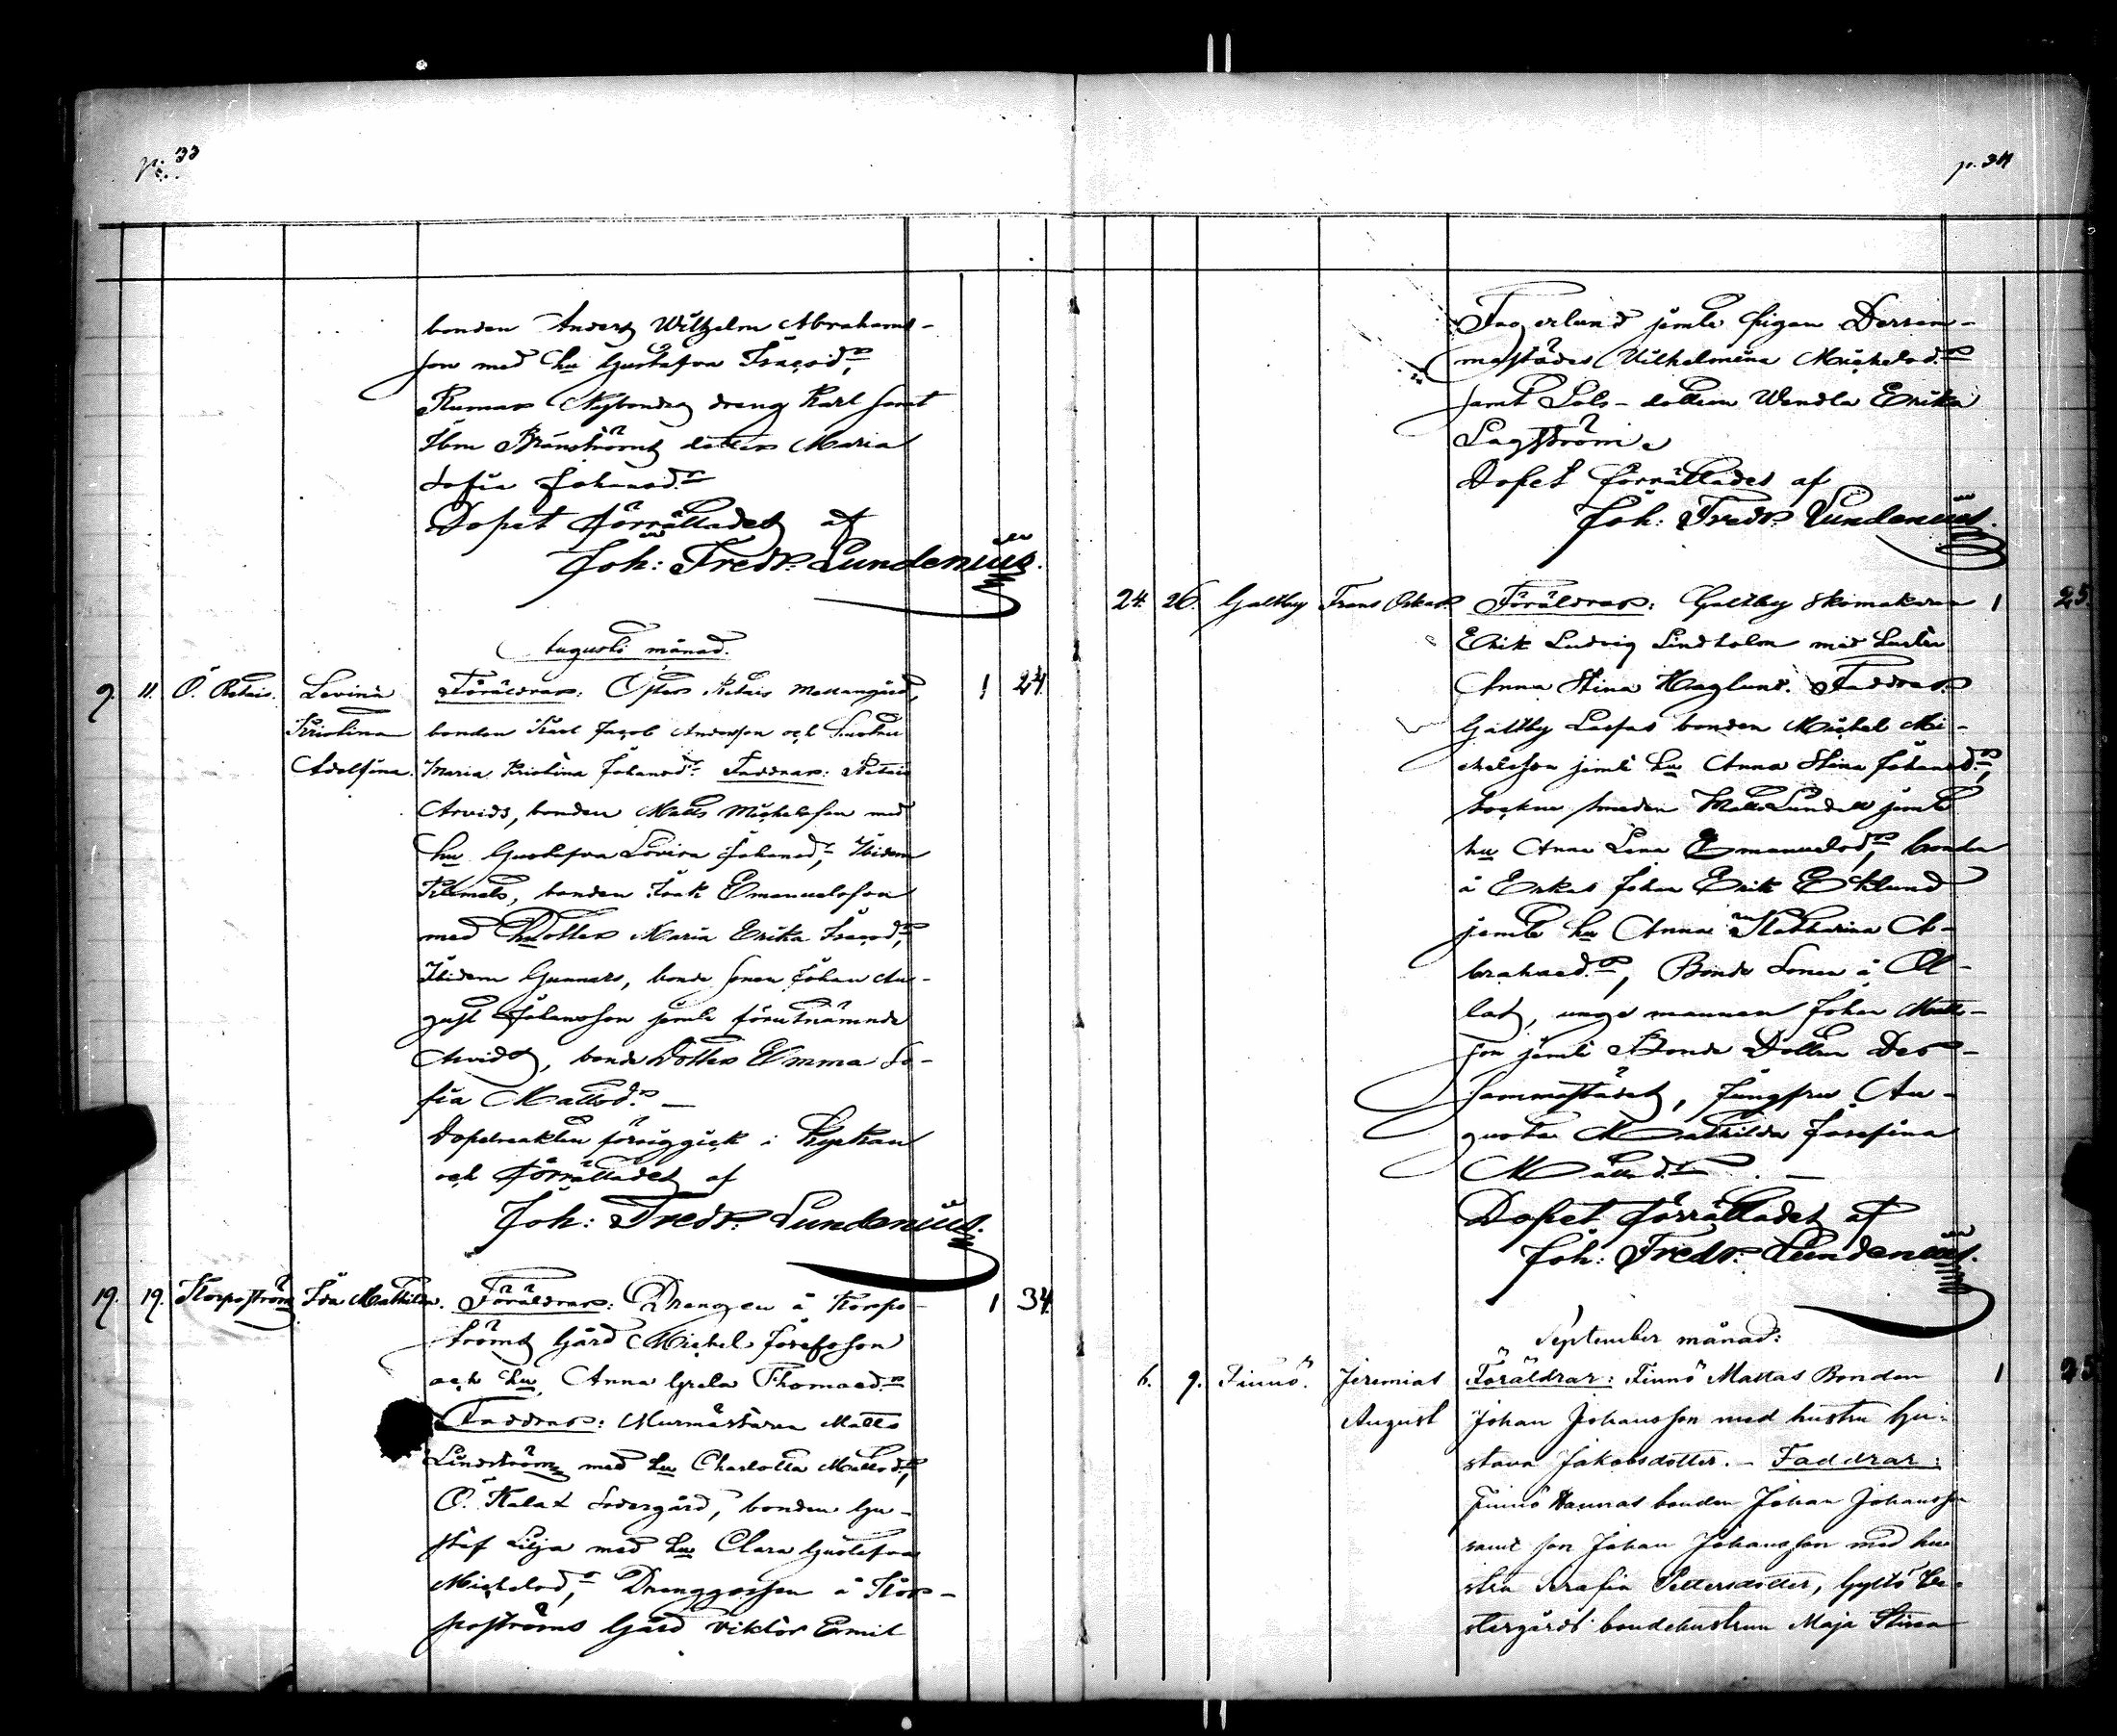 p. 33
bonden Anders Wilhelm Abrahams-
son med hu Gustafva Isacsd:r,
Rumar Nybondas dreng Karl samt
Ibm Bränströms dotter Maria
Sofia Johansd:r
Dopet förrättades af
Joh: Fredr: Lundenius.
Augusti månad.
9. 11. Ö. Retais. Lovina Föräldrar: Öster Retais Mellangård, 1 24.
Kristina bonden Karl Jacob Andersson och hustru
Adolfina. Maria Kristina Johansd:r Faddrar: Retais
Arvids, bonden Matts Michelsson med
hu Gustafva Lovisa Johansd:r, Ibidem
Klemets, bonden Isak Emanuelsson
med Dotter Maria Erika Isacsd:r,
Ibidem Gunnars, bonde sonen Johan Au-
gust Johansson jemte förutnämnde
Arvids, bonde Dotter Emma So-
fia Mattsd:r —
Dopelseakten försiggick i Kyrkan
och förrättades af
Joh: Fredr: Lundenius.
19. 19. Korpoström Ida Mathilda. Föräldrar: Drengen å Korpo- 1 34.
ströms Gård Michel Josefsson
och hu, Anna Greta Thomasd:r
Faddrar: Murmästaren Matts
Lindström med hu Charlotta Mattsd:r,
Ö. Kalax Södergård, bonden Gu-
staf Lilja med hu Clara Gustafva
Michelsd:r, Drenggossen å Kor-
poströms Gård Viktor Emil
p. 34
Fagerlund jemte Pigan Dersam-
mastädes Vilhelmina Michelsd:r
samt Lots-dottren Wendla Erika
Lagström.
Dopet förrättades af
Joh: Fredr. Lundenius.
24. 26. Galtby Frans Oskar. Föräldrar: Galtby Skomakaren 1 25.
Erik Ludvig Lindholm med hustru
Anna Stina Haglund. Faddrar:
Galtby Laspas bonden Michel Mi-
chelsson jemte hu Anna Stina Johansd:r,
Socknesmeden Matts Lundell jemte
hu Anna Lena Emanuelsd:r, bonden
å Erkas Johan Erik Eklund
jemte hu Anna Katharina A-
brahamsd:r, Bonde Sonen å Ol-
las, unge mannen Johan Matts-
son jemte Bonde Dottren Der-
sammastädes, Jungfru Au-
gusta Mathilda Josefina
Mattsd:r —
Dopet förrättades af
Joh: Fredr: Lundenius.
September månad:
6. 9. Finnö. Jeremias Föräldrar: Finnö Mattas Bonden 1 25
August Johan Johansson med hustru Gu-
stava Jakobsdotter. – Faddrar:
Finnö Hannas bonden Johan Johansson
samt son Johan Johansson med hu-
stru Serafia Pettersdotter, Gyltö We-
stergårds bondehustrun Maja Stina